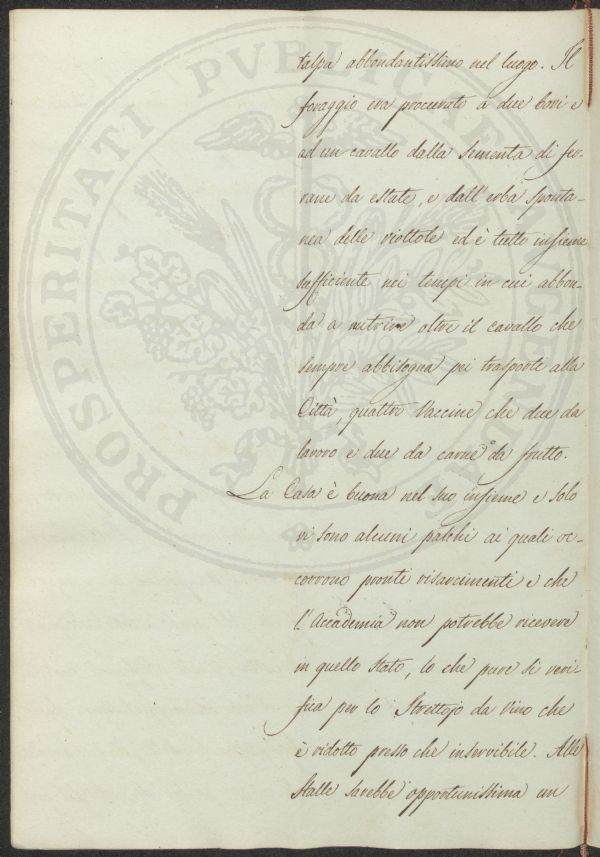 talpa abbondantissimo nel luogo. Il
foraggio era procurato a due bovi e
ad un cavallo dalla sementa di fer-
rane da estate, e dall'erba sponta-
nea delle viottole ed è tutto insieme
sufficiente nei tempi in cui abbon-
da a nutrire oltre il cavallo che
sempre abbisogna pei trasporti alla
Città, quattro Vaccine che due da
lavoro e due da carne o da frutto.
La Casa è buona nel suo insieme e solo
vi sono alcuni palchi ai quali oc-
corrono pronti risarcimenti e che
l'Accademia non potrebbe ricevere
in quello Stato, lo che pure si veri-
fica per lo Strettojo da Vino che
è ridotto presso che inservibile. Alle
Stalle sarebbe opportunissima un
PROSPERITATI PVBLICAE